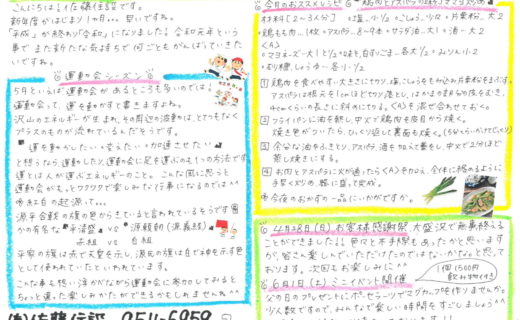 こんにちは!佐藤伝設です。
新年度がはじまり1ヶ月…早いですね。
「平成」が終わり「令和」になりました!令和元年という
事でまた新たな気持ちで何ごともがんばっていきた
いですね。
運動会シーズン
5月というと運動会があるところも多いのでは。
運動会って、運を動かすって書きますよね。
沢山のエネルギーが生まれ、その周辺の波動は、とてつもなく
プラスのものが流れているんだそうです。
“運を動かしたい・変えたい・加速させたい”
と思うなら、運動したり、運動会に足を運ぶのも1つの方法です。
運とは人が運ぶエネルギーのこと。こんな風に思うと
運動会がもっとワクワクで楽しみな行事になるのでは^^
紅白の起源って…
源平合戦の旗の色からきていると言われているそうです
の有名な 平清盛 vs 源頼朝(源義経)
赤組 vs 白組
平家の旗は赤で天皇を示し、源氏の旗は白で神を示す色
として使われていたといわれています。
こんな事も想い浮かべながら運動会に参加してみると
ちょっと違った楽しみかたができるかもしれませんね^^
(有)佐藤伝設
今日のおススメレシピ 鶏肉とアスパラの炒めマヨ炒め
材料[2~3人分] ・塩…小1/2 ・こしょう…少々 ・片栗粉…大2
・鶏もも肉…1枚 ・アスパラ…8~9本 ・サラダ油…大1 ・酒…大2
<A>
・マヨネーズ…大1と1/2 ・みりん…小2
・しょうゆ…各小1/2
①鶏肉を食べやすい大きさに切り、塩、こしょうをもみ込み片栗粉をまぶす。
アスパラは根元を1cmほど切り落とし、はかまや下の皮をむき、
4cmくらいの長さに斜めに切る。<A>を混ぜ合わせておく。
②フライパンに油を熱し、中火で鶏肉を皮目から焼く。
焼き色がついたら、ひっくり返して裏面も焼く。
③余分な油をふきとり、アスパラ、酒を加えて蓋をし、中火で2分ほど
蒸し焼きにする。
④お肉とアスパラに火が通ったら<A>を加え、全体に絡めるように
手早くまぜ、器に盛って完成。
今夜のおかずの一品にいかがですか。
4月28日(日)お客様感謝祭 大盛況で無事終える
ことができました!!色々と不手際もあったかと思います
が、皆さん楽しんでいただけたのではないかなと思って
おります。次回もお楽しみに^^
6月1日(土)ミニイベント開催
1個1500円
飲み物付き
父の日のプレゼントにポーセラーツでマグカップ作りませんか。
少人数ですので、みんなで楽しい時間をすごしましょう